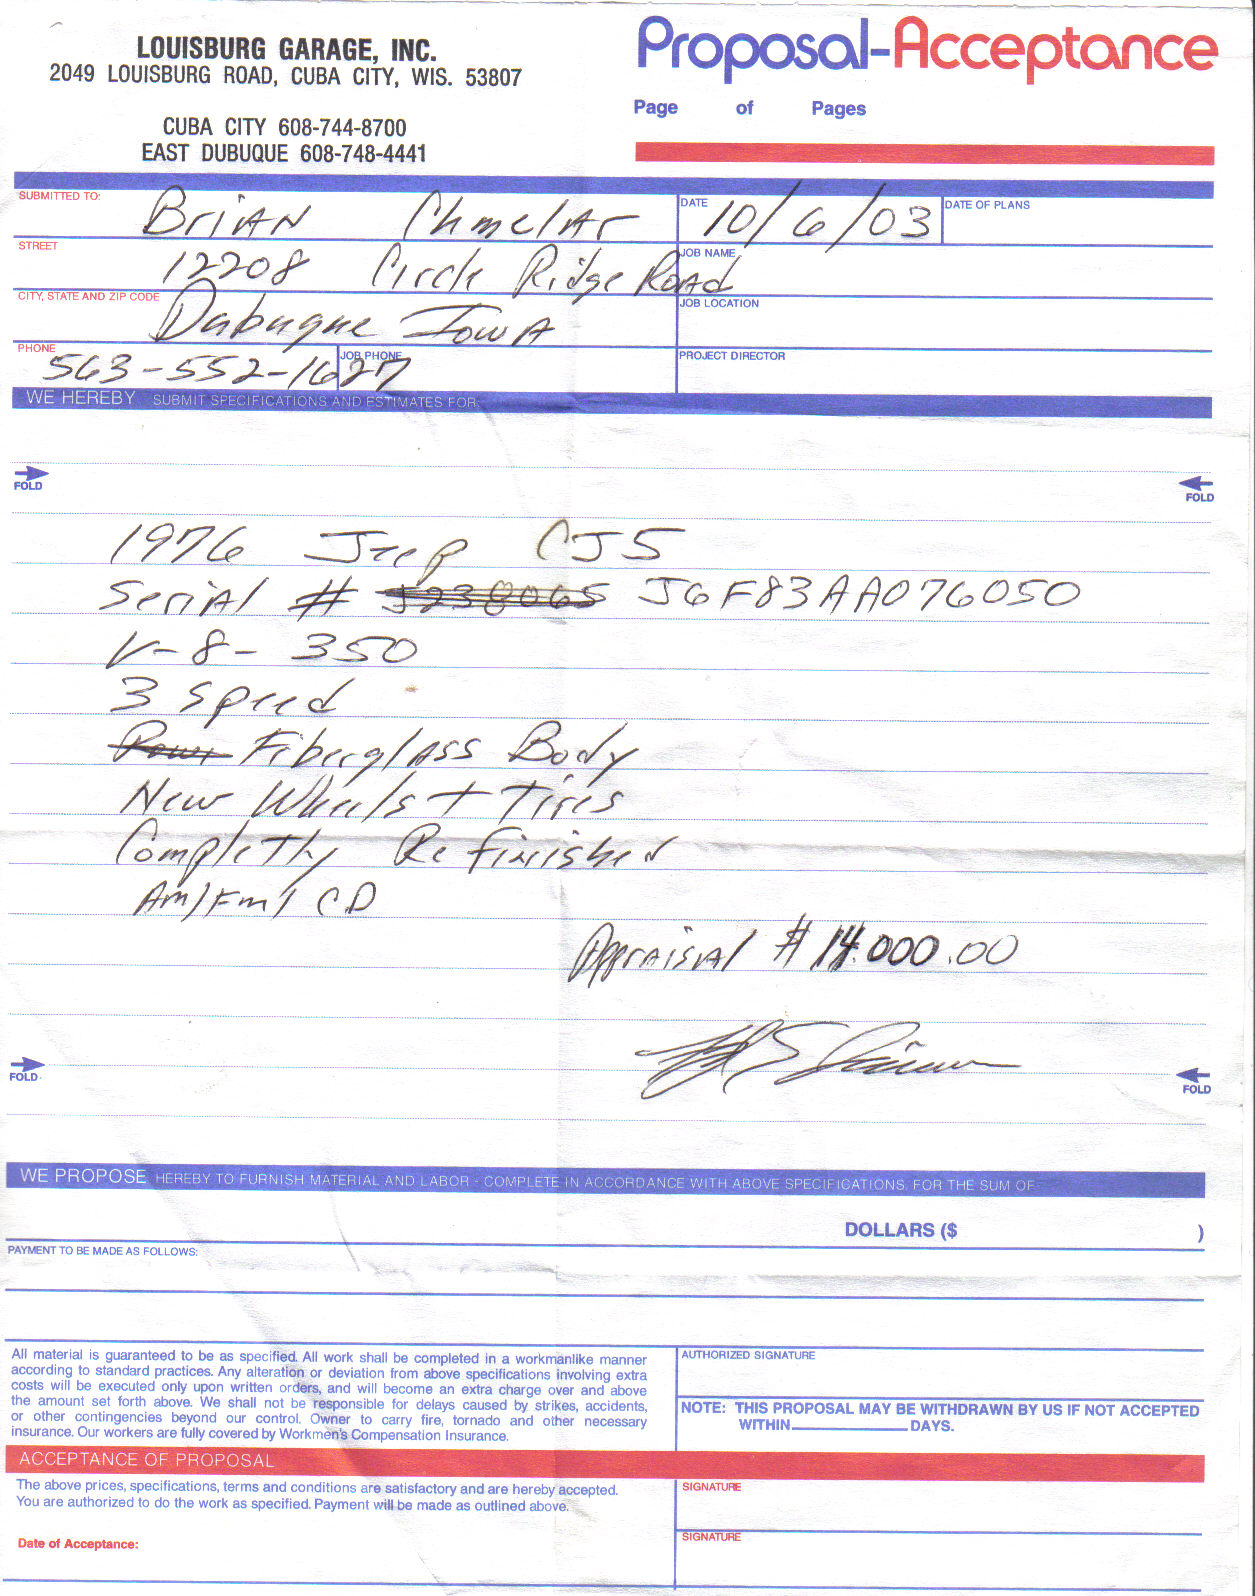 LOUISBURG GARAGE, INC.
2049 LOUISBURG ROAD, CUBA CITY, WIS. 53807
CUBA CITY 608-744-8700
EAST DUBUQUE 608-748-4441
Proposal-Acceptance
Page of Pages
SUBMITTED TO: Brian Chmelar
DATE 10/6/03
DATE OF PLANS
STREET 12208 Circle Ridge Road
JOB NAME
CITY, STATE AND ZIP CODE Dubuque Iowa
JOB LOCATION
PHONE 563-552-1627
JOB PHONE
PROJECT DIRECTOR
WE HEREBY SUBMIT SPECIFICATIONS AND ESTIMATES FOR:
FOLD FOLD
1976 Jeep CJ5
Serial # J238065 J6F83AA076050
V-8- 350
3 Speed
Fiberglass Body
New Wheels + Tires
Completly Refinished
Am/Fm/CD
Appraisal $14.000.00
FOLD FOLD
WE PROPOSE HEREBY TO FURNISH MATERIAL AND LABOR - COMPLETE IN ACCORDANCE WITH ABOVE SPECIFICATIONS, FOR THE SUM OF
DOLLARS ($ )
PAYMENT TO BE MADE AS FOLLOWS:
All material is guaranteed to be as specified. All work shall be completed in a workmanlike manner
according to standard practices. Any alteration or deviation from above specifications involving extra
costs will be executed only upon written orders, and will become an extra charge over and above
the amount set forth above. We shall not be responsible for delays caused by strikes, accidents,
or other contingencies beyond our control. Owner to carry fire, tornado and other necessary
insurance. Our workers are fully covered by Workmen's Compensation Insurance.
AUTHORIZED SIGNATURE
NOTE: THIS PROPOSAL MAY BE WITHDRAWN BY US IF NOT ACCEPTED
WITHIN DAYS.
ACCEPTANCE OF PROPOSAL
The above prices, specifications, terms and conditions are satisfactory and are hereby accepted.
You are authorized to do the work as specified. Payment will be made as outlined above.
Date of Acceptance:
SIGNATURE
SIGNATURE